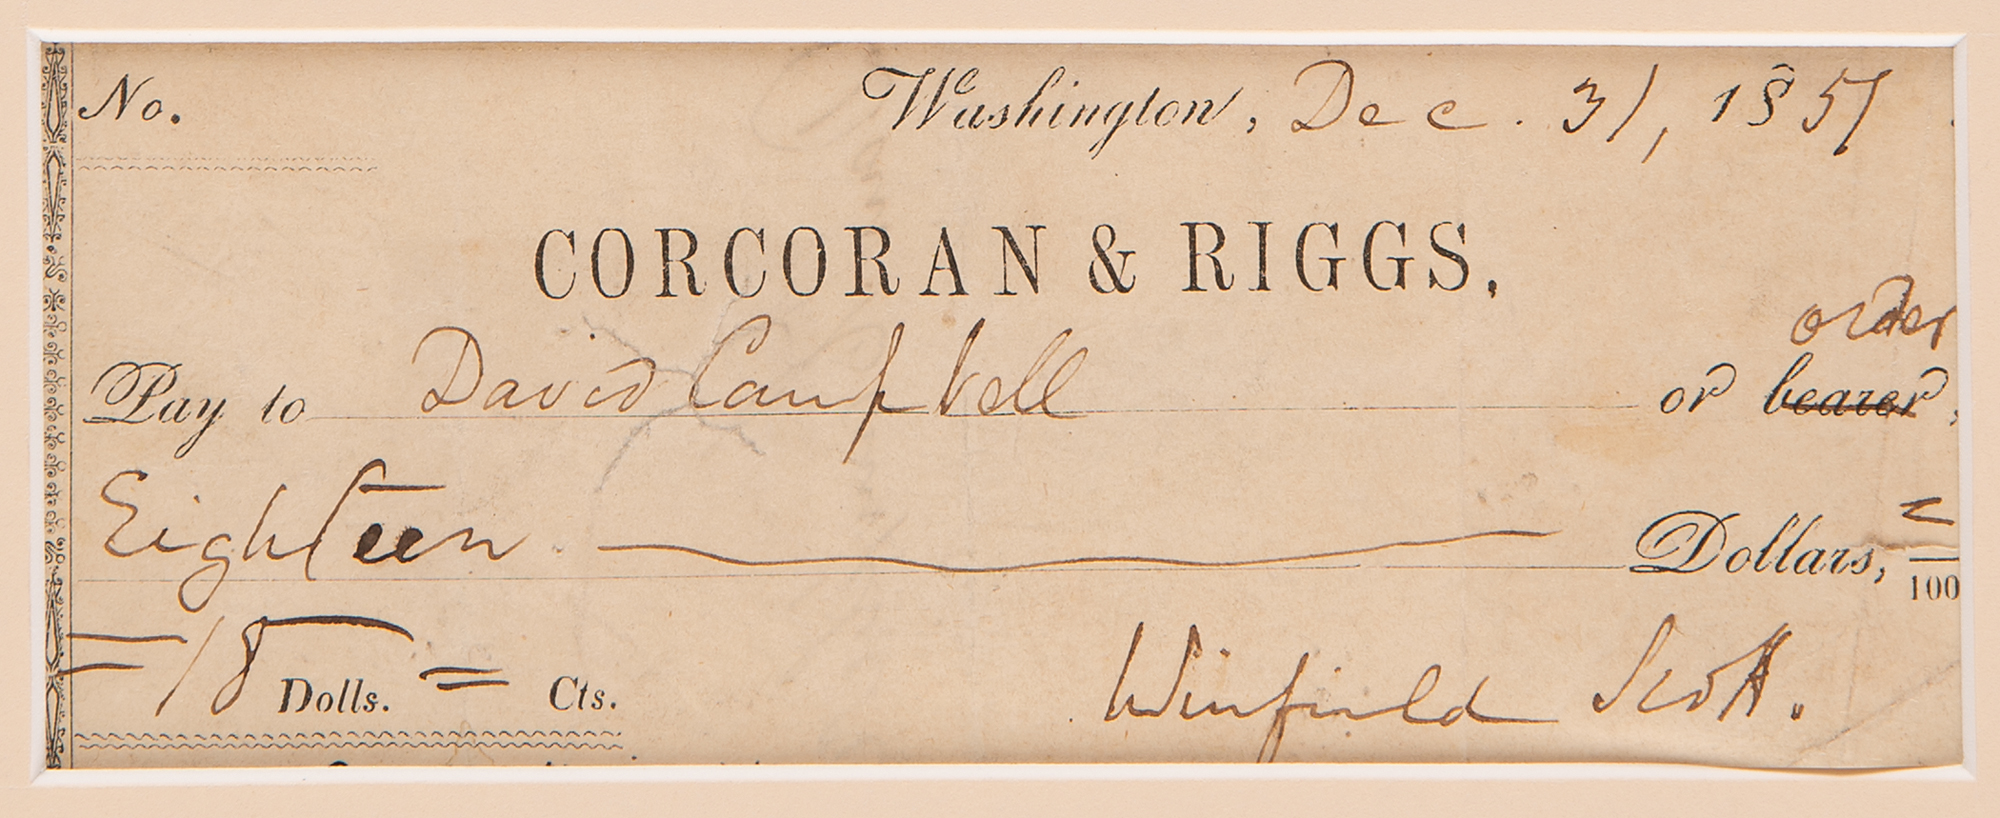 No. Washington, Dec. 31, 1851
CORCORAN & RIGGS.
order
Pay to David Campbell or bearer,
Eighteen — Dollars, =/100
= 18 Dolls. = Cts. Winfield Scott.